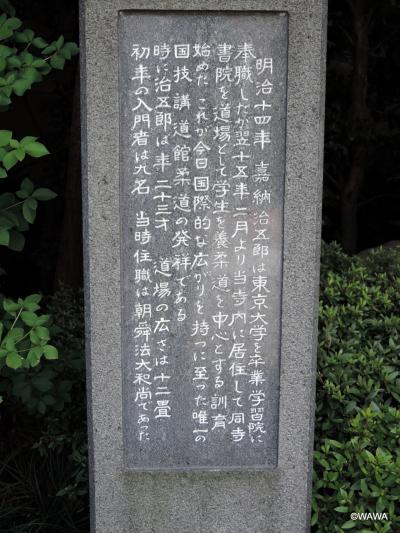 明治十四年 嘉納治五郎は東京大学を卒業学習院に
奉職したが翌十五年二月より当寺内に居住して同寺
書院を道場として学生を養柔道を中心とする訓育
始めた これが今日国際的な広がりを持つに至った唯一の
国技 講道館柔道の発祥である
時に治五郎は年二十三才 道場の広さは十二畳
初年の入門者は九名 当時住職は朝舜法大和尚であった
©WAWA